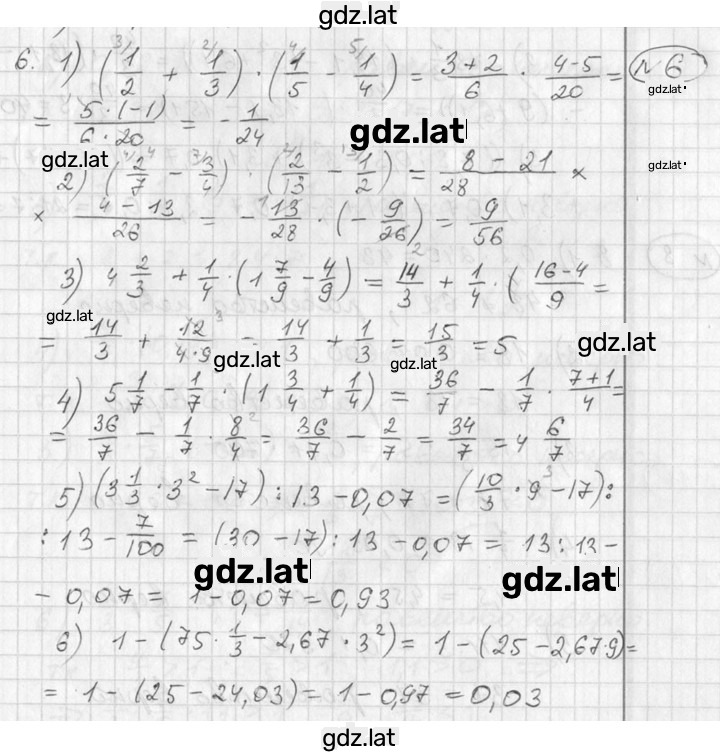 gdz.lat
6. 1) (1/2 + 1/3) · (1/5 - 1/4) = (3+2)/6 · (4-5)/20 = №6
gdz.lat
= 5·(-1)/(6·20) = - 1/24
gdz.lat
gdz.lat
gdz.lat
2) (2/7 - 3/4) · (2/13 - 1/2) = (8 - 21)/28 ×
× (4 - 13)/26 = - 13/28 · (- 9/26) = 9/56
3) 4 2/3 + 1/4 · (1 7/9 - 4/9) = 14/3 + 1/4 · (16-4)/9 =
gdz.lat
= 14/3 + 12/(4·9) = 14/3 + 1/3 = 15/3 = 5
gdz.lat
gdz.lat
gdz.lat
4) 5 1/7 - 1/7 · (1 3/4 + 1/4) = 36/7 - 1/7 · (7+1)/4 =
= 36/7 - 1/7 · 8/4 = 36/7 - 2/7 = 34/7 = 4 6/7
5) (3 1/3 · 3² - 17) : 13 - 0,07 = (10/3 · 9 - 17) :
: 13 - 7/100 = (30 - 17) : 13 - 0,07 = 13 : 13 -
gdz.lat
gdz.lat
- 0,07 = 1 - 0,07 = 0,93
6) 1 - (75 · 1/3 - 2,67 · 3²) = 1 - (25 - 2,67·9) =
= 1 - (25 - 24,03) = 1 - 0,97 = 0,03
gdz.lat